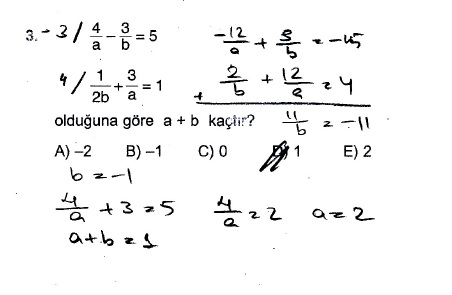 3. -3 / 4/a - 3/b = 5
-12/a + 9/b = -15
4 / 1/2b + 3/a = 1
2/b + 12/a = 4
+
olduğuna göre a + b kaçtır?
11/b = -11
A) -2 B) -1 C) 0 D) 1 E) 2
b = -1
4/a + 3 = 5 4/a = 2 a = 2
a+b = 1